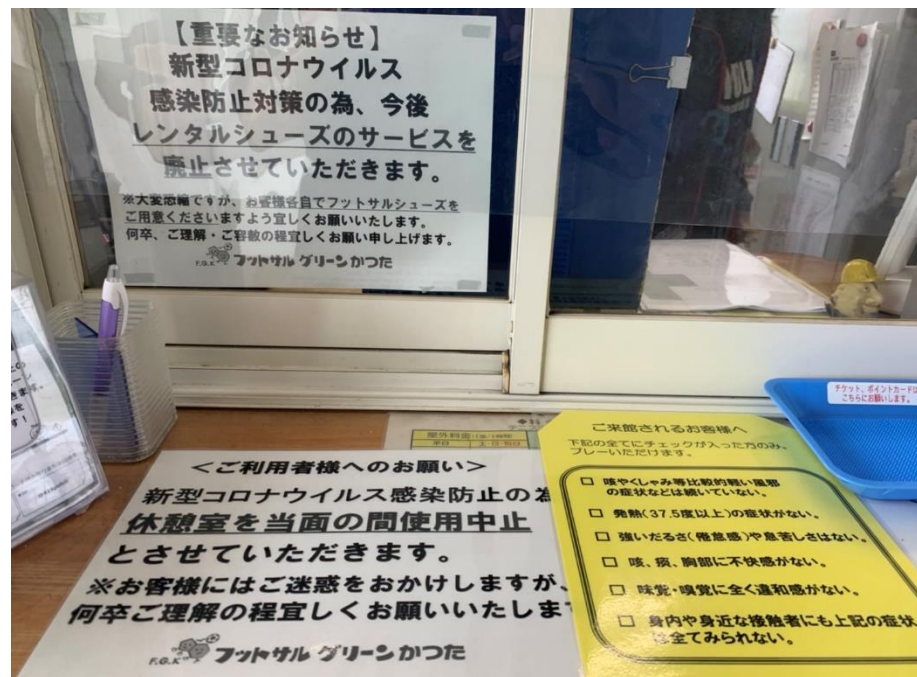 【重要なお知らせ】
新型コロナウイルス
感染防止対策の為、今後
レンタルシューズのサービスを
廃止させていただきます。
※大変恐縮ですが、お客様各自でフットサルシューズを
ご用意くださいますよう宜しくお願いいたします。
何卒、ご理解・ご容赦の程宜しくお願い申し上げます。
F.G.K フットサル グリーンかつた
チケット、ポイントカードは
こちらにお願いします。
屋外料金
平日
<ご利用者様へのお願い>
新型コロナウイルス感染防止の為
休憩室を当面の間使用中止
とさせていただきます。
※お客様にはご迷惑をおかけしますが、
何卒ご理解の程宜しくお願いいたしま
F.G.K フットサル グリーンかつた
ご来館されるお客様へ
下記の全てにチェックが入った方のみ、
プレーいただけます。
□ 咳やくしゃみ等比較的軽い風邪
の症状などは続いていない。
□ 発熱(37.5度以上)の症状がない。
□ 強いだるさ(倦怠感)や息苦しさはない。
□ 咳、痰、胸部に不快感がない。
□ 味覚・嗅覚に全く違和感がない。
□ 身内や身近な接触者にも上記の症状
は全てみられない。